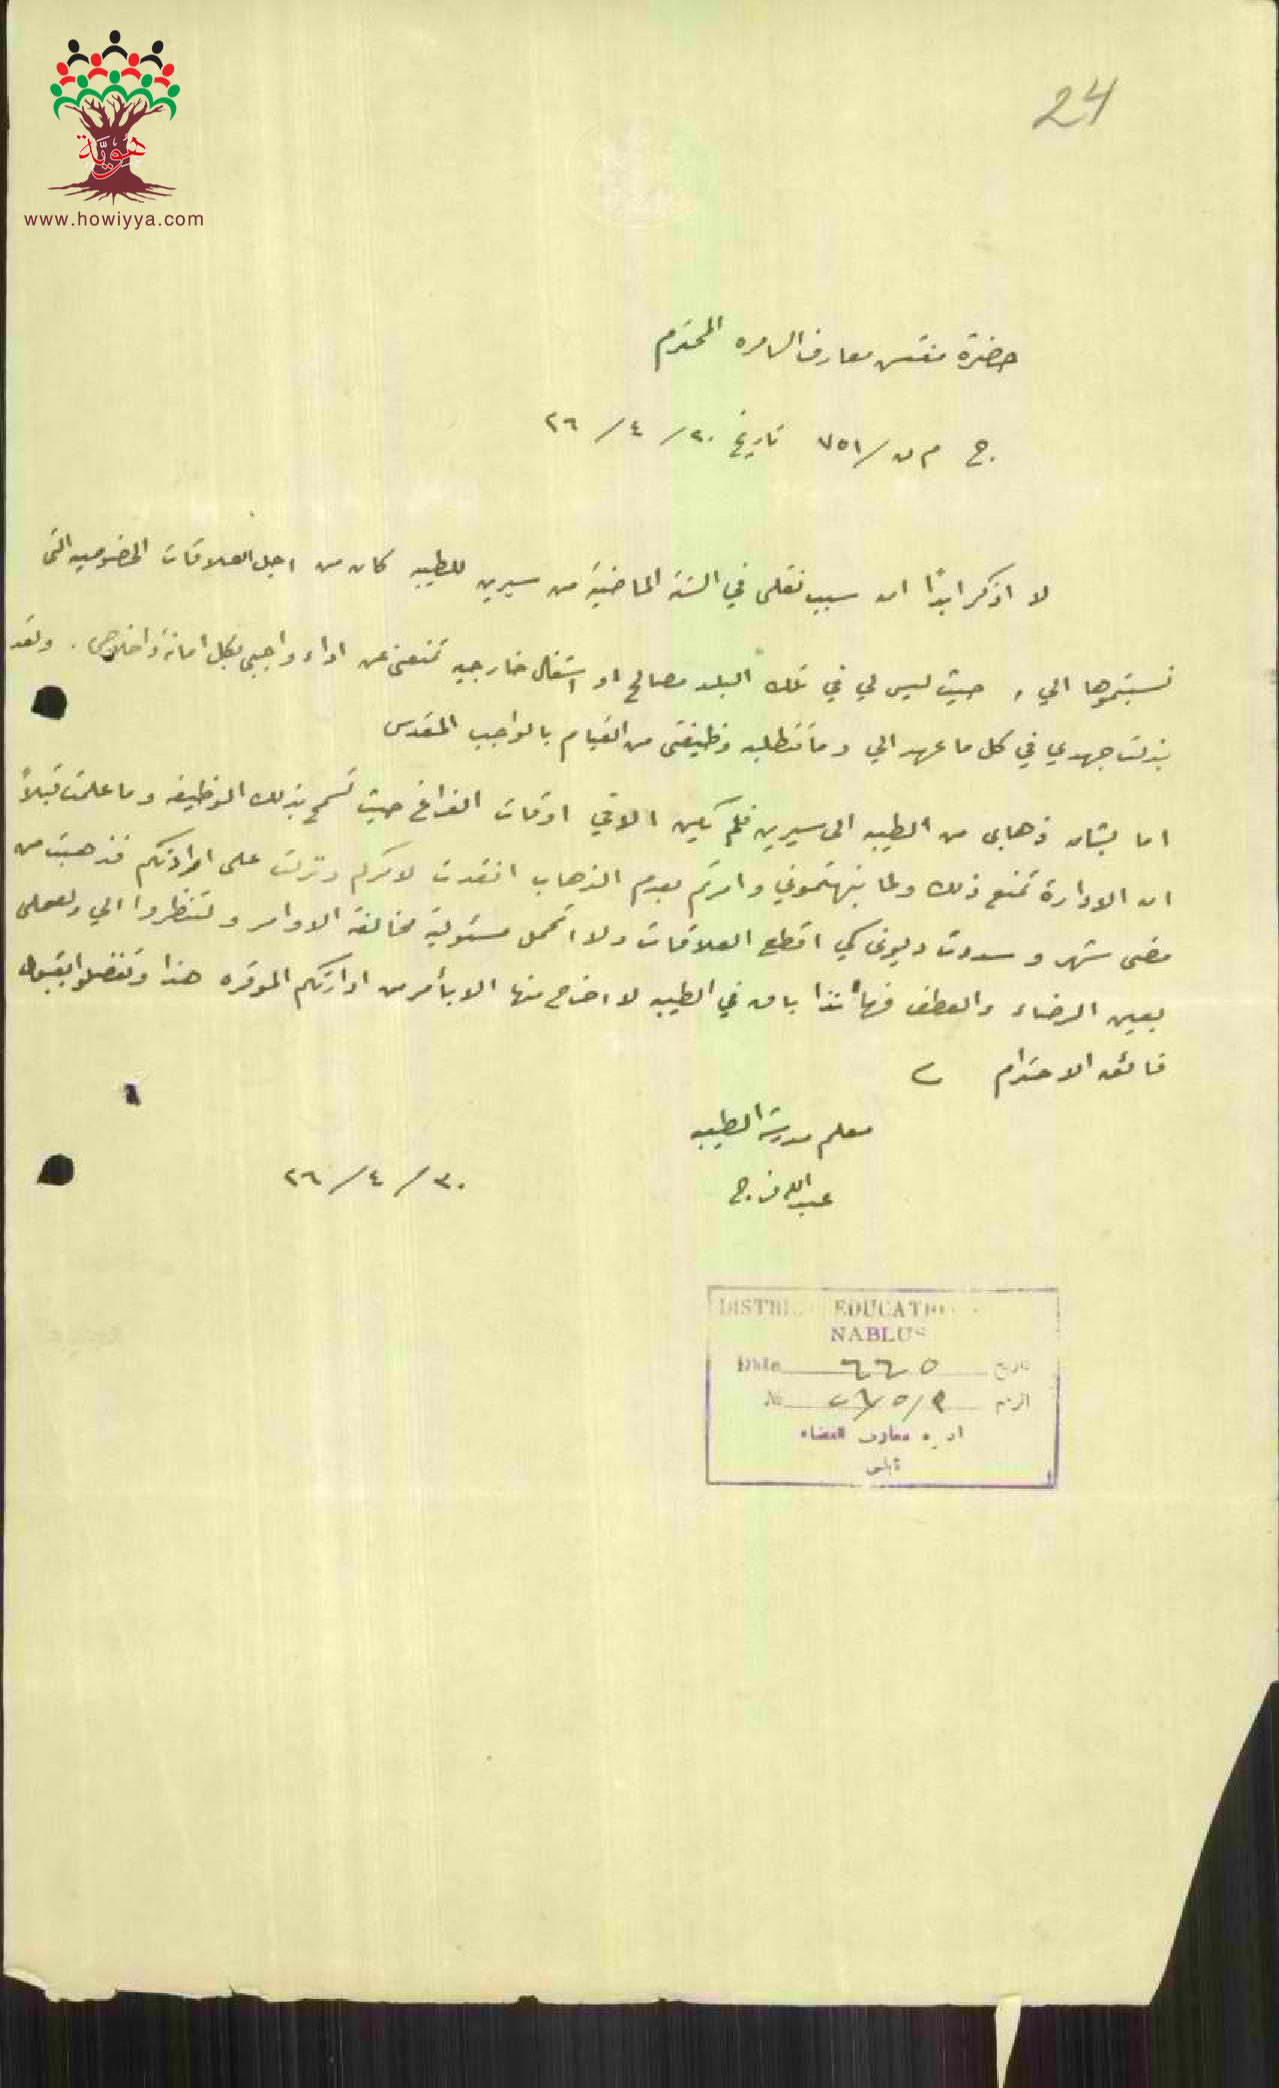 هوية
www.howiyya.com
24
حضرة مفتش معارف السامره المحترم
ج م ن/٧٥١ تاريخ ٢٠/٤/٢٦
لا اذكر ابدًا ان سبب نقلي في السنة الماضية من سيرين للطيبه كان من اجل العلاقات الخصوصيه التي
نسبتموها الي، حيث ليس لي في تلك البلد مصالح او اشغال خارجيه تمنعني عن اداء واجبي بكل امانة واخلاص. ولقد
بذلت جهدي في كل ما عهد الي وما تتطلبه وظيفتي من القيام بالواجب المقدس
اما بشان ذهابي من الطيبه الى سيرين فلم يكن الا في اوقات الفراغ حيث تسمح بذلك الوظيفه وما علمت قبلاً
ان الادارة تمنع ذلك ولما نبهتموني وامرتم بعدم الذهاب انقدت لامركم ونزلت على ارادتكم فذهبت من
مضى شهر وسددت ديوني كي اقطع العلاقات ولا اتحمل مسئولية مخالفة الاوامر ولتنظروا الي ولعملي
بعين الرضاء والعطف فها انذا باق في الطيبه لا اخرج منها الا بأمر من ادارتكم الموقره هذا وتفضلوا بقبول
فائق الاحترام
معلم مدرسة الطيبه
عبدالله فرج
٣٠/٤/٢٦
EDUCATIO
NABLUS
Date تاريخ
№ الرقم
معارف القضاء
نابلس